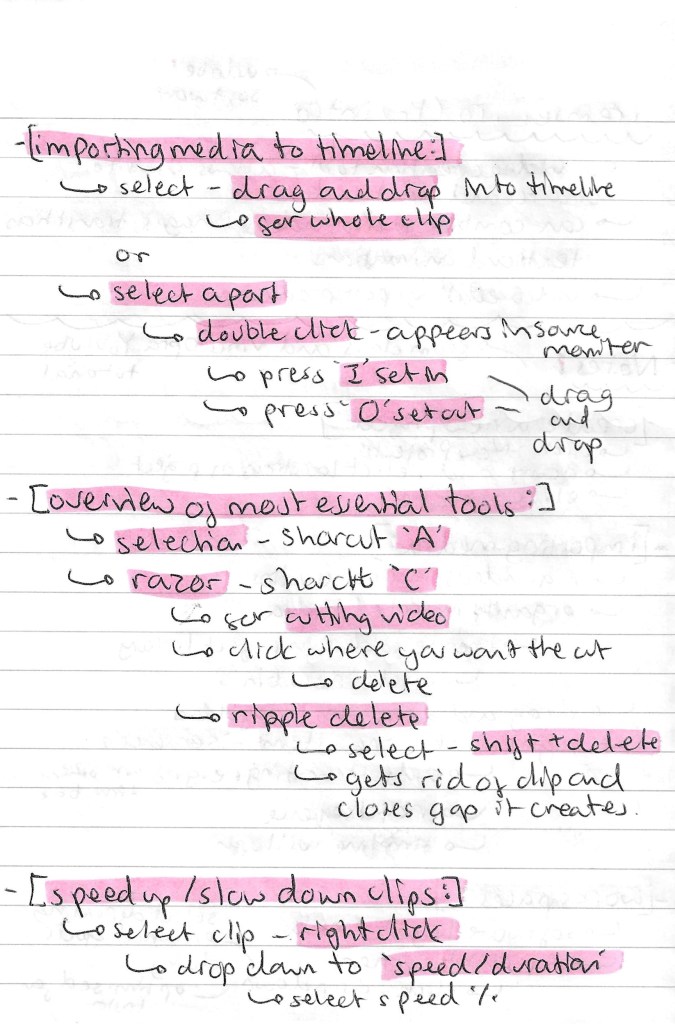 - [importing media to timeline:]
↳ select - drag and drop into timeline
↳ for whole clip
or
↳ select a part
↳ double click - appears in source
moniter
↳ press 'I' set in
↳ press 'O' set out
drag
and
drop
- [overview of most essential tools:]
↳ selection - sharcut 'A'
↳ razor - sharctt 'C'
↳ for cutting video
↳ click where you want the cut
↳ delete
↳ ripple delete
↳ select - shift + delete
↳ gets rid of clip and
closes gap it creates.
- [speed up / slow down clips:]
↳ select clip - right click
↳ drop down to 'speed/duration'
↳ select speed %